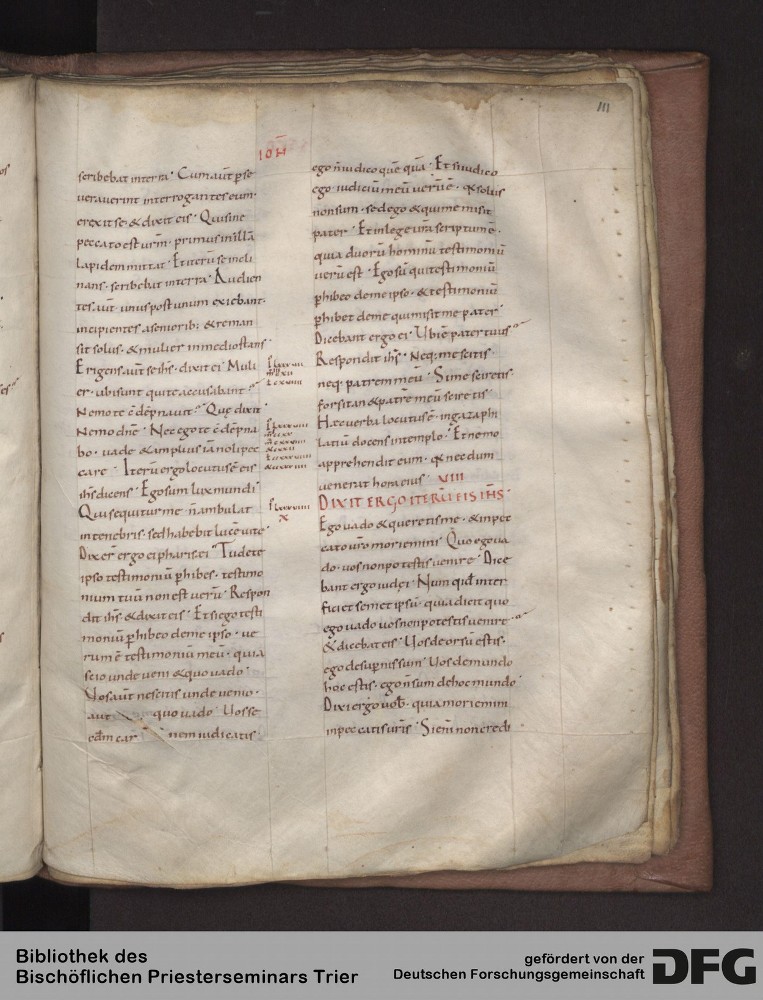 111
IOH̄
scribebat interra· Cumaūt ꝑse
uerauerint interrogantes eum·
erexit se· & dixit eis· Quisine
peccato est ur̄m· primus inillā
lapidem mittat· Etiterū se incli
nans· scribebat interra· Audien
tes aūt· unus post unum exiebant·
incipientes aseniorib;· & reman
sit solus· & mulier inmedio stans·
Erigens aūt se ih̄s· dixit ei· Muli
er· ubi sunt qui te accusabant·
Nemo te c̄dēpnauit· Quę dixit·
Nemo dn̄e· Nec ego te c̄dēpna
bo· uade & amplius iā noli pec
care· Iterū ergo locutus ē eis
ih̄s dicens· Ego sum lux mundi
Qui sequitur me· n̄ ambulat
intenebris· sed habebit lucē uitę·
Dixer̄ ergo ei pharisęi· Tu de te
ipso testimoniū ꝑhibes· testimo
nium tuū non est uerū· Respon
dit ih̄s· & dixit eis· Et si ego testi
moniū ꝑhibeo de me ipso· ue
rum ē testimoniū meū· quia
scio unde ueni & quo uado·
Uos aūt nescitis unde uenio·
aut quo uado· Uos se
cdm̄ car nem iudicatis·
ego n̄ iudico quē quā· Et si iudico
ego· iudiciū meū uerū ē· q̄a solus
non sum· sed ego & qui me misit
pater· Et in lege ur̄a scriptum ē·
quia duorū hominū testimoniū
uerū est· Ego sū qui testimoniū
ꝑhibeo de me ipso· & testimoniū
ꝑhibet de me qui misit me pater·
Dicebant ergo ei· Ubi ē pater tuus
Respondit ih̄s· Neq; me scitis·
neq; patrem meū· Si me sciretis·
forsitan & patrē meū sciretis·
Hęc uerba locutus ē· in gazaphi
latiū docens in templo· Et nemo
apprehendit eum· q̄a nec dum
uenerat hora eius· VIII
DIXIT ERGO ITERŪ EIS IH̄S·
Ego uado & queretis me· & in pec
cato ur̄o moriemini· Quo ego ua
do· uos non potestis uenire· Dice
bant ergo iudęi· Num quid inter
ficiet semet ipsū· quia dicit quo
ego uado uos non potestis uenire·
& dicebat eis· Uos de orsū estis·
ego de supernis sum· Uos de mundo
hoc estis· ego n̄ sum de hoc mundo·
Dixi ergo uob̄· quia moriemini
in peccatis ur̄is· Si eni̅ non credi
Bibliothek des
Bischöflichen Priesterseminars Trier
gefördert von der
Deutschen Forschungsgemeinschaft
DFG